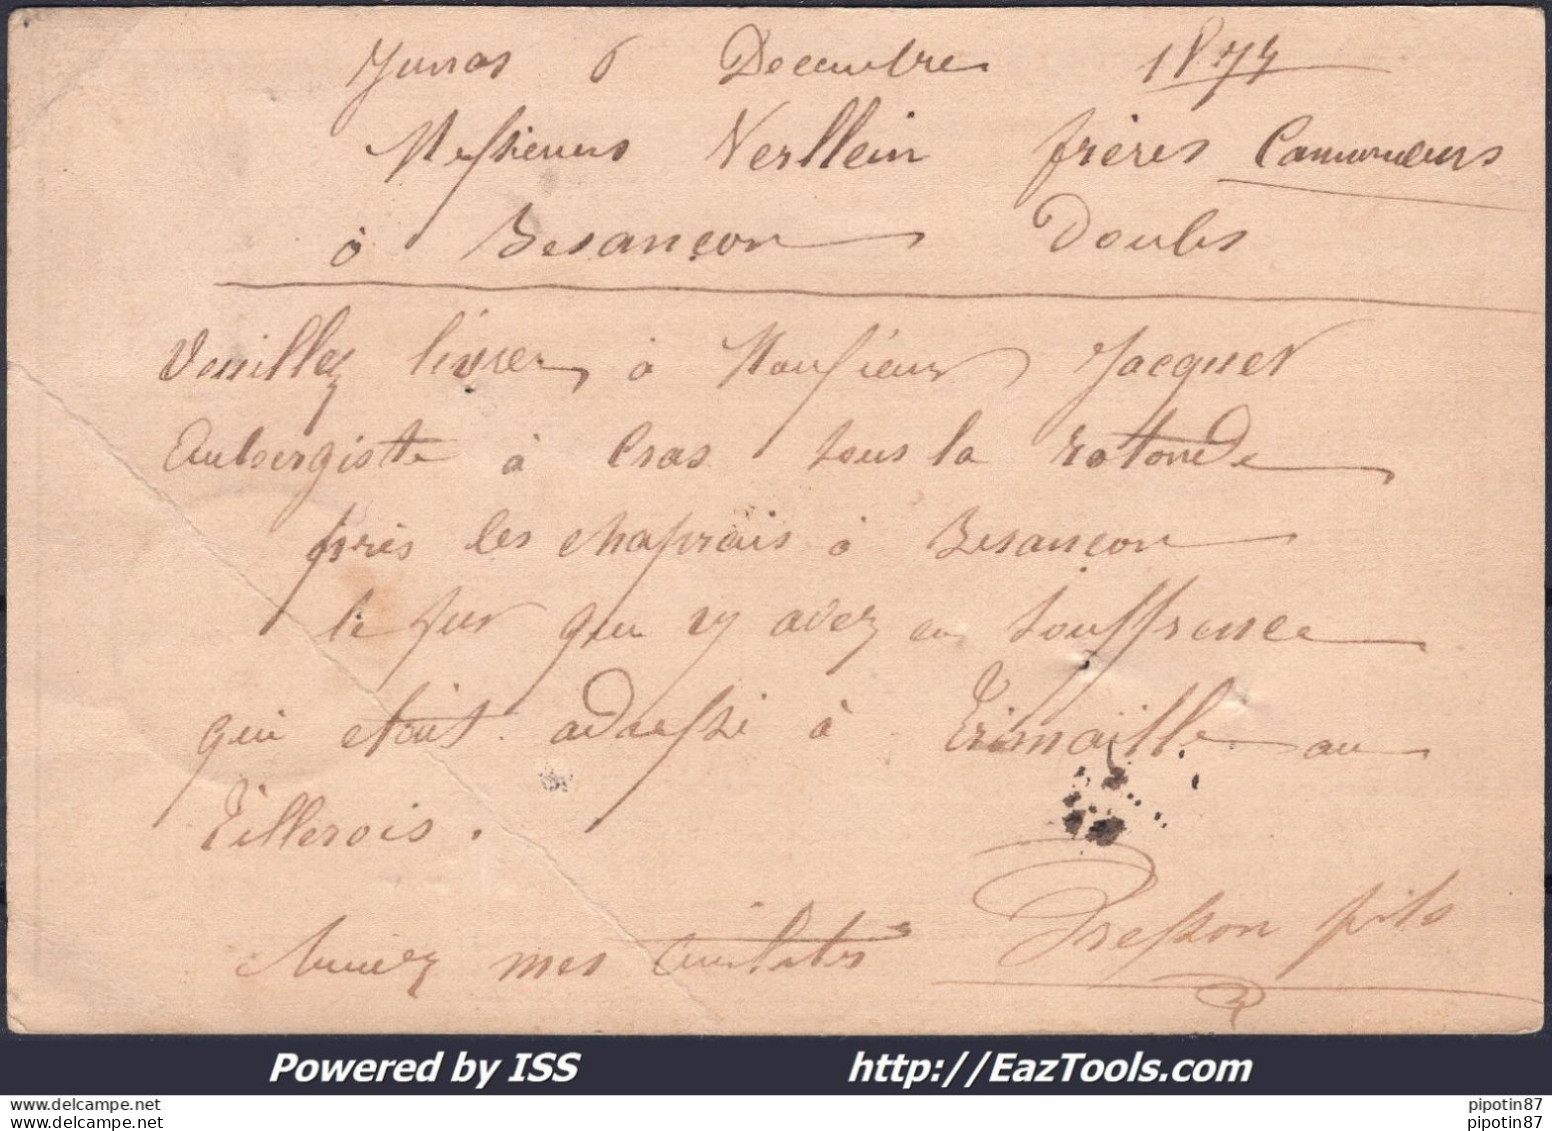 6 Decembre 1874
Messieurs Nerllein frères Camioneurs
à Besançon Doubs
Veuillez livrer à Monsieur Jacquet
Aubergiste à Cras sous la rotonde
près les chaprais à Besançon
le fut que vs avez en souffrence
qui etait adressé à Trimaille au
Tillerois.
mes Civilités Presson fils
Powered by ISS http://EazTools.com
delcampe.net pipotin87
delcampe.net pipotin87